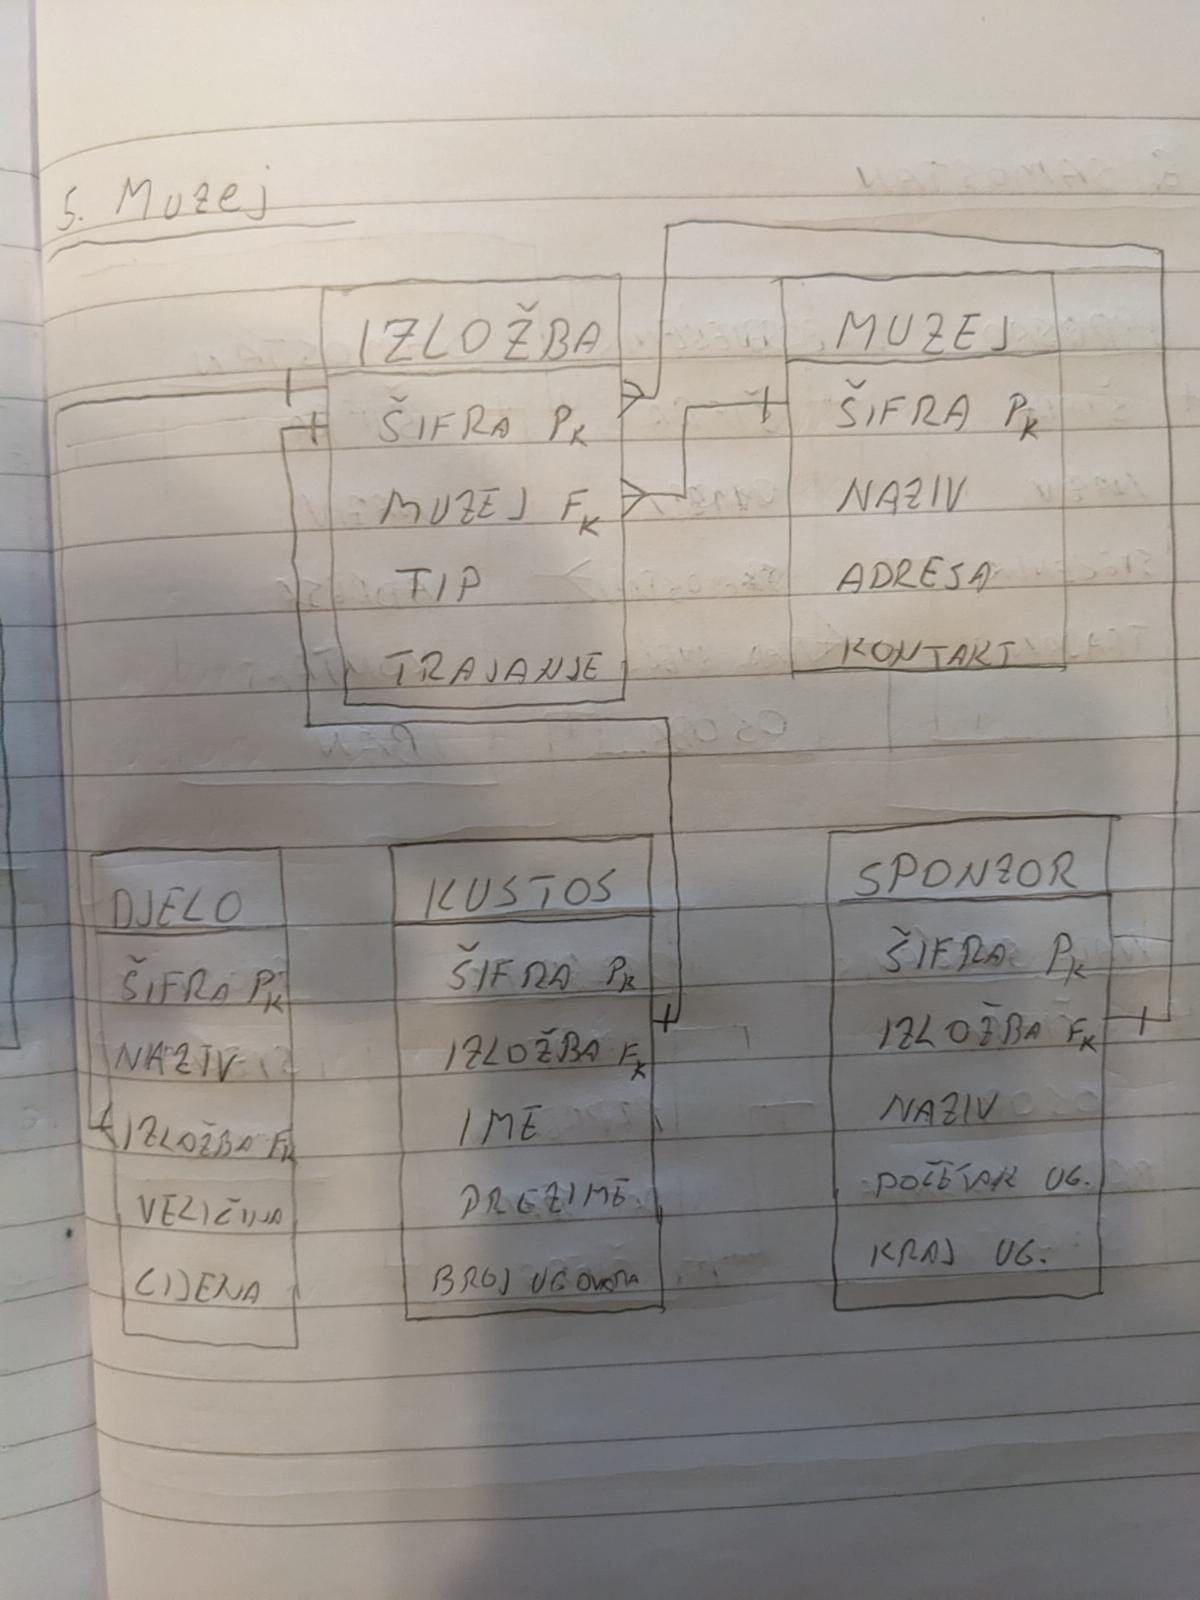 5. Muzej
IZLOŽBA
ŠIFRA PK
MUZEJ FK
TIP
TRAJANJE
MUZEJ
ŠIFRA PK
NAZIV
ADRESA
KONTAKT
DJELO
ŠIFRA PK
NAZIV
IZLOŽBA FK
VELIČINA
CIJENA
KUSTOS
ŠIFRA PK
IZLOŽBA FK
IME
PREZIME
BROJ UGOVORA
SPONZOR
ŠIFRA PK
IZLOŽBA FK
NAZIV
POČETAK UG.
KRAJ UG.